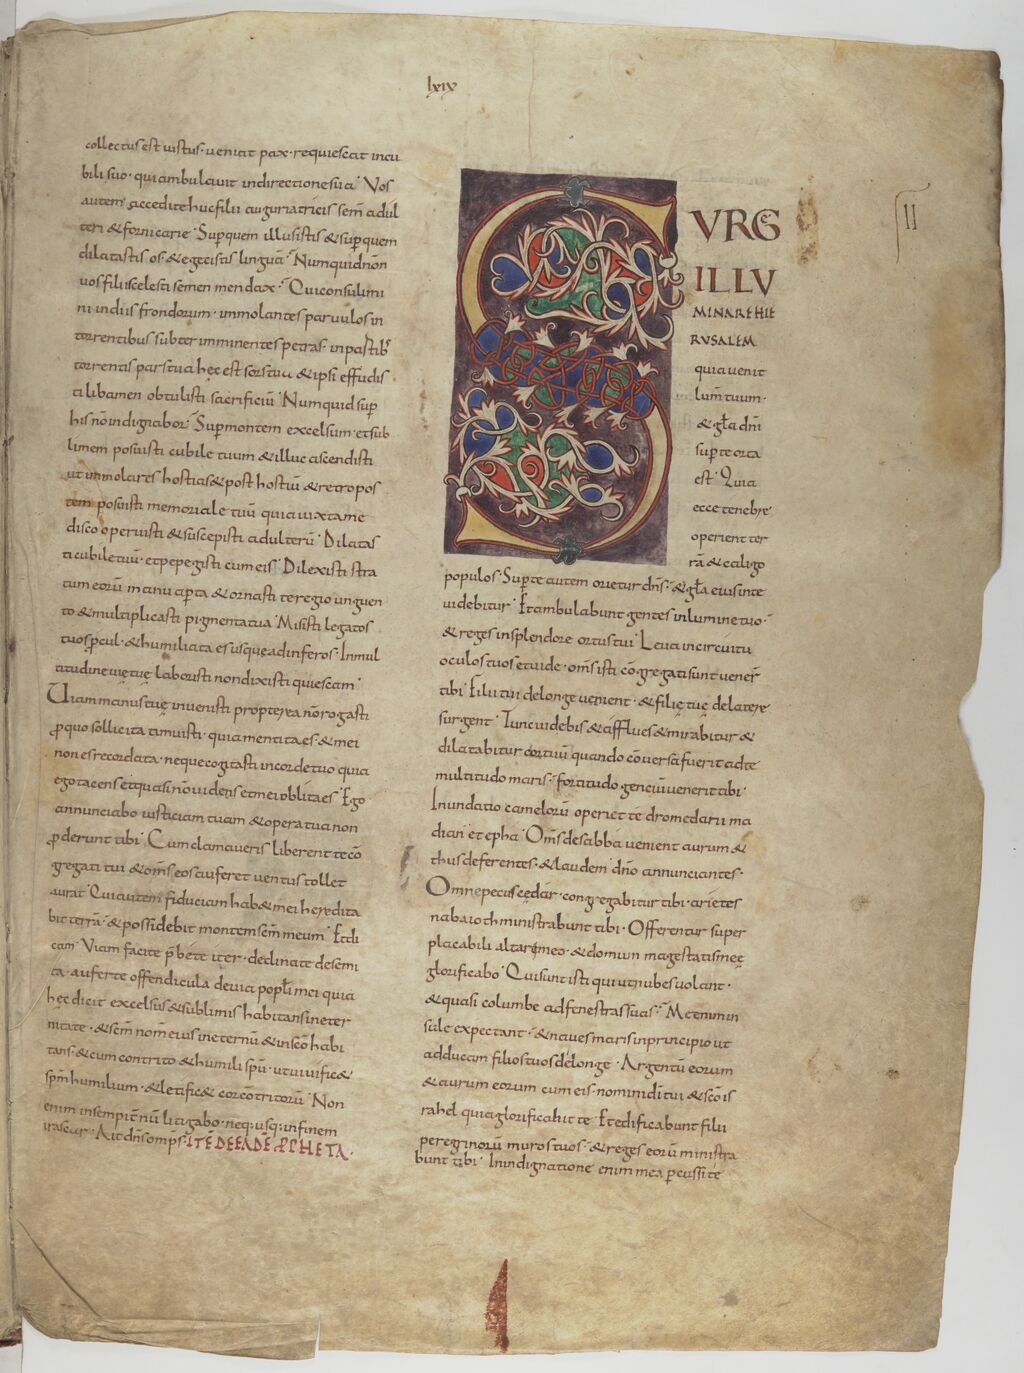 lxix
collectus est iustus · ueniat pax · requiescat incu
bili suo · qui ambulauit indirectione sua · Vos
autem accedite huc filii auguriatricis sem̄ adul
teri & fornicarie · Sup̄ quem illusistis & sup̄ quem
dilatastis os · & egecistis lingua · Numquid non
uos filii scelesti semen mendax · Qui consolimi
ni indiis frondorum · immolantes paruulos in
torrentibus subter imminentes petras · in partib;
torrentis pars tua hęc est sors tua & ipsi effudis
ti libamen obtulisti sacrificiū · Numquid sup̄
his nō indignabor · Sup̄ montem excelsum · et sub
limem posuisti cubile tuum & illuc ascendisti
ut immolares hostias & post hostiū & retro pos
tem posuisti memoriale tuū quia iuxta me
disco operuisti & suscepisti adulterū · Dilatas
ti cubile tuū · et pepegisti cum eis · Dilexisti stra
tum eorū manu ap̄ta & ornasti te regio unguen
to & multiplicasti pigmenta tua · Misisti legatos
tuos p̄cul · & humiliata es usque ad inferos · In mul
titudine uię tuę laborasti non dixisti quiescam ·
Uiam manus tuę inuenisti propterea nō rogasti
p̄ quo sollicita timuisti · quia mentita es · & mei
non es recordata · neque cogitasti in corde tuo quia
ego tacens et quasi nō uidens et mei oblita es · Ego
annunciabo iusticiam tuam & opera tua non
p̄derunt tibi · Cum clamaueris liberent te cō
gregati tui & om̄s eos auferet uentus tollet
aura · Qui autem fiduciam hab& mei heredita
bit terrā · & possidebit montem sc̄m meum · Et di
cam · Viam facite p̄bete iter · declinate de semi
ta · auferte offendicula de uia popl̄i mei quia
hęc dicit excelsus & sublimis habitans in eter
nitate · & sc̄m nom̄ eius in eternū & in sc̄o habi
tans · & cum contrito & humili spū · ut uiuific&
sp̄m humilium · & letific& cor cōtritorū · Non
enim in sempit̄nū litigabo · neq; usq; in finem
irascar · Ait dn̄s omp̄s · ITĒ DE EADĒ P̄PHETA ·
II
SVRGE
ILLV
MINARE HIE
RVSALEM
quia uenit
lum̄ tuum ·
& gl̄a dn̄i
sup̄ te orta
est · Quia
ecce tenebrę
operient ter
rā & caligo
populos · Sup̄ te autem orietur dn̄s · & gl̄a eius in te
uidebitur · Et ambulabunt gentes in lumine tuo ·
& reges in splendore ortus tui · Leua in circuitu
oculos tuos et uide · om̄s isti cōgregati sunt uener̄
tibi · Filii tui de longe uenient · & filię tuę de latere
surgent · Tunc uidebis & afflues & mirabitur &
dilatabitur cor tuū quando cōuersa fuerit ad te
multitudo maris · fortitudo genciū uenerit tibi ·
Inundatio camelorū operiet te dromedarii ma
dian et epha · Om̄s de sabba uenient aurum &
thus deferentes · & laudem dn̄o annunciantes ·
Omne pecus cędar · congregabitur tibi · arietes
nabaioth ministrabunt tibi · Offerentur super
placabili altari meo · & domum magestatis meę
glorificabo · Qui sunt isti qui ut nubes uolant ·
& quasi columbe ad fenestras suas · Me enim in
sule expectant · & naues maris in principio ut
adducam filios tuos de longe · Argentū eorum
& aurum eorum cum eis · nomini di tui & sc̄o is
rahel quia glorificabit te · Et edificabunt filii
peregrinorū muros tuos · & reges eorū ministra
bunt tibi · In indignatione enim mea p̄cussi te